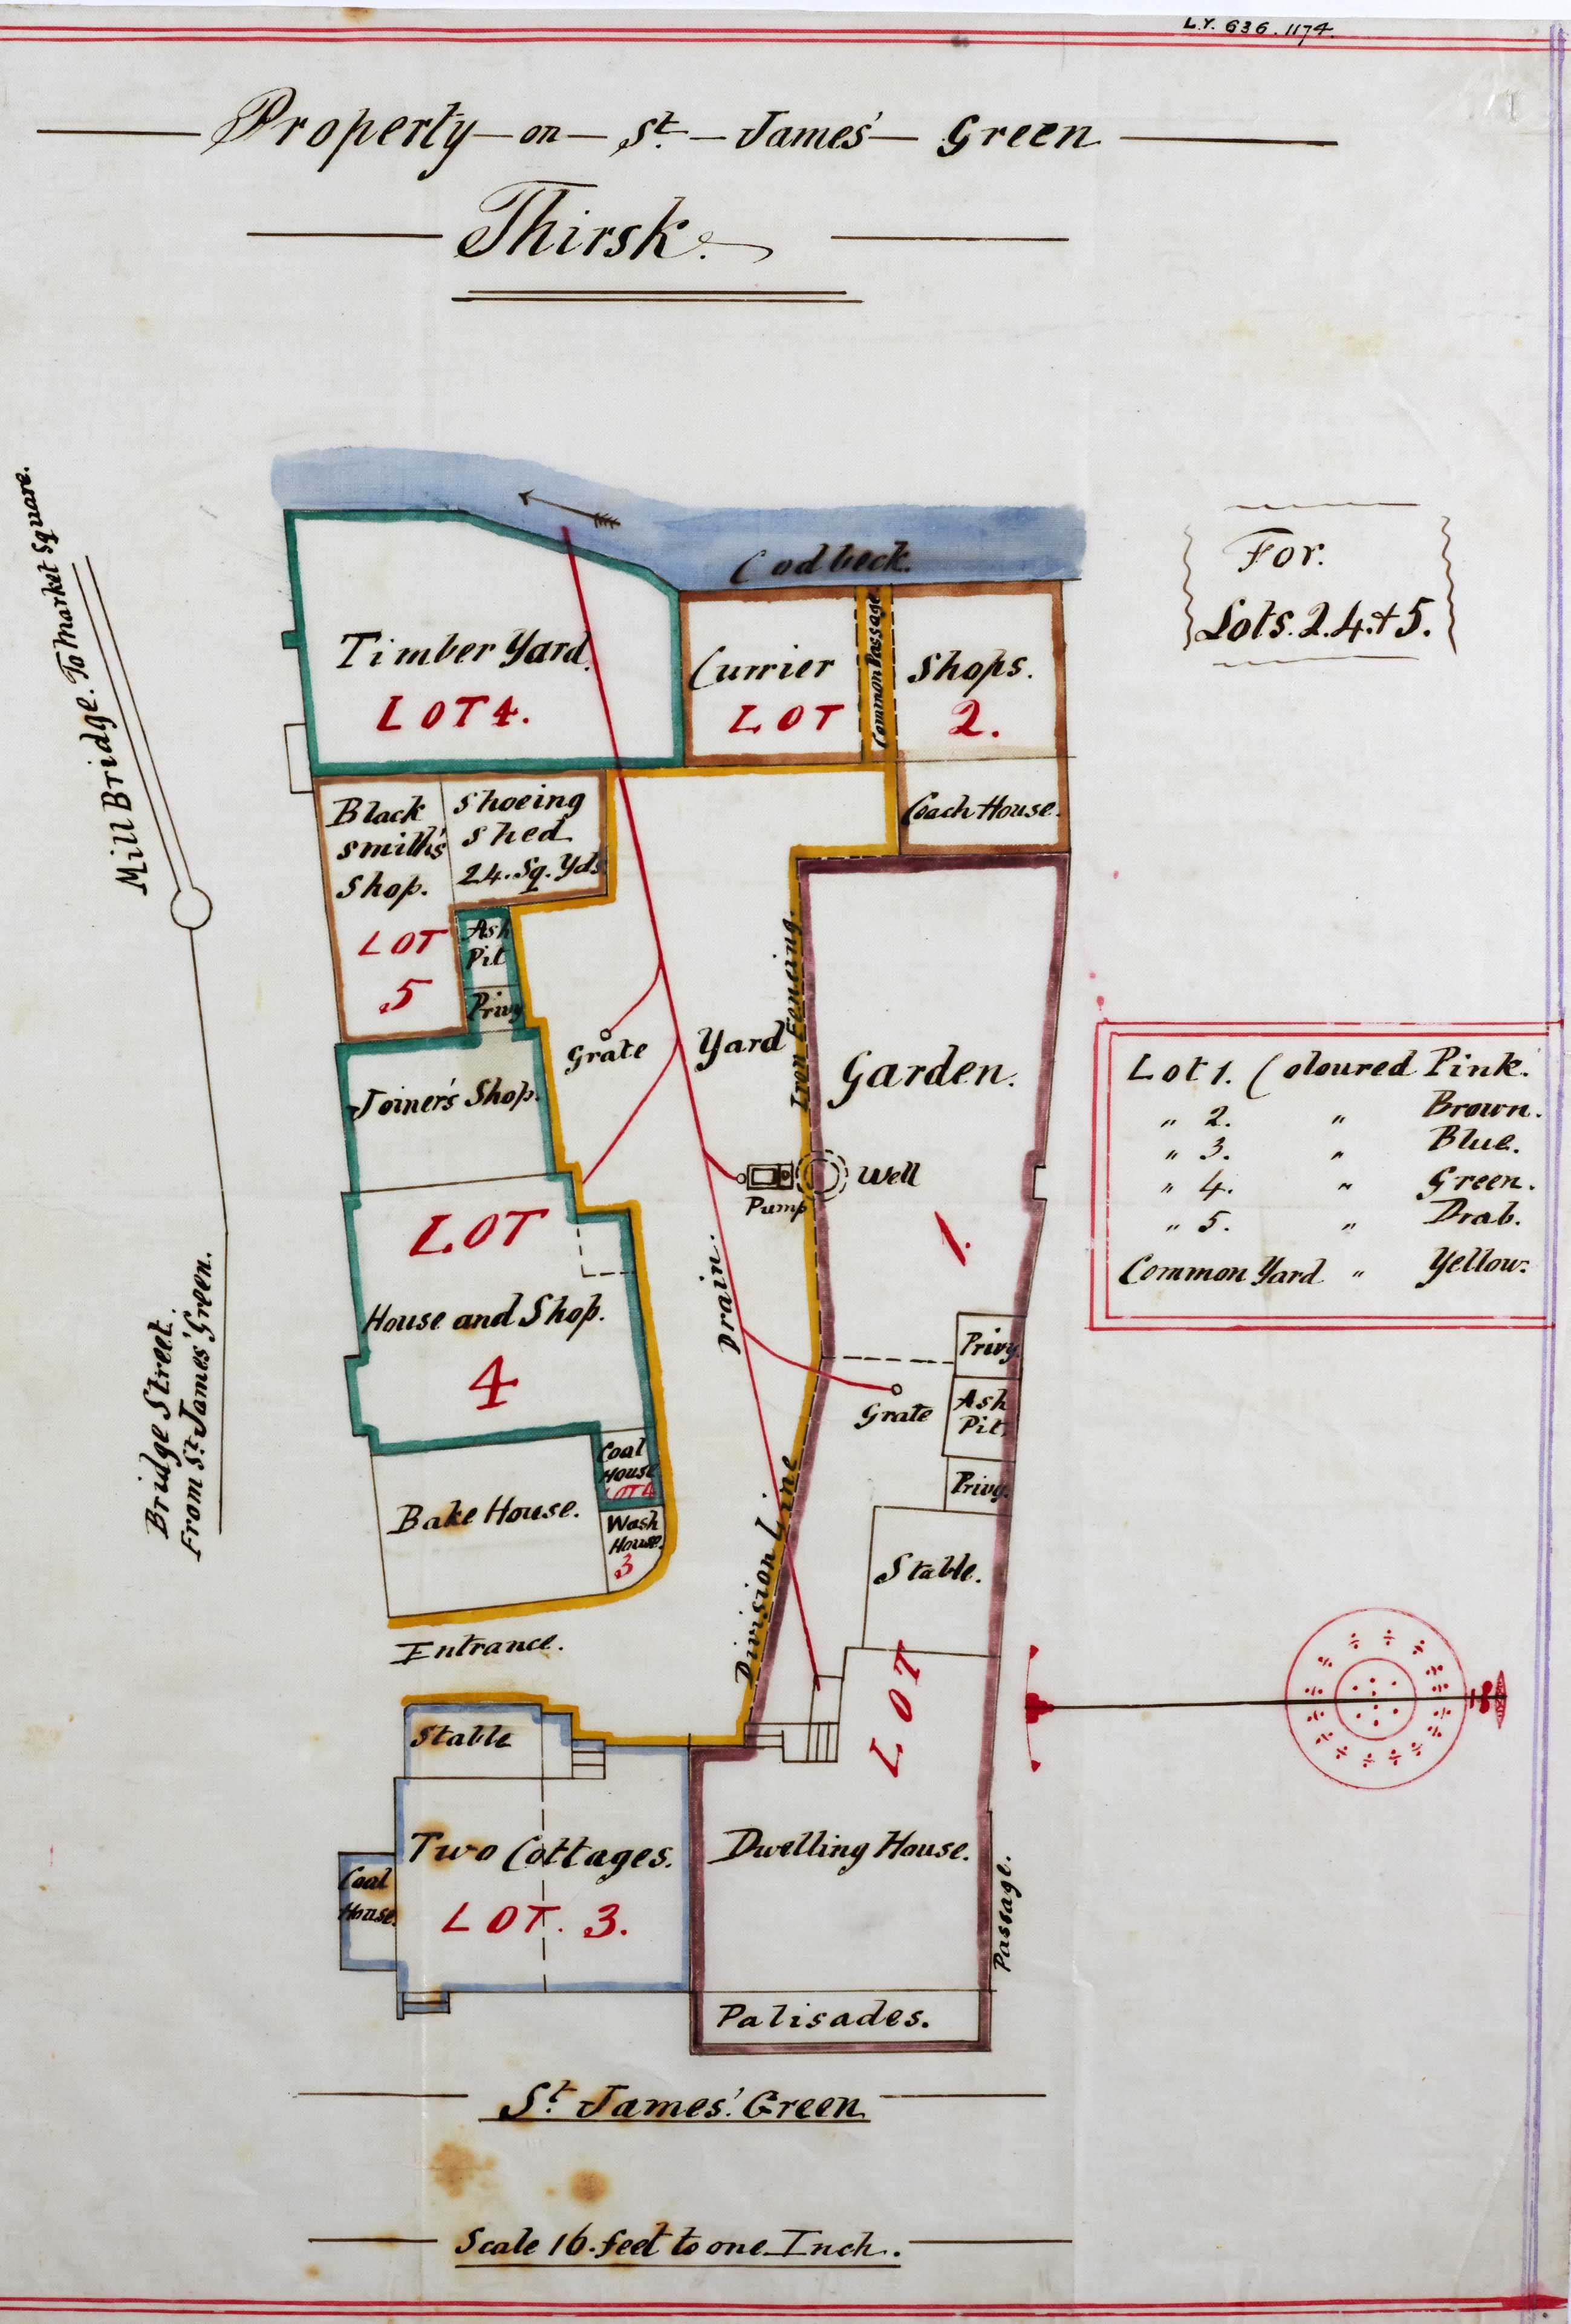 L.Y. 636. 1174.
Property on St. James' Green
Thirsk.
Mill Bridge. To Market Square.
Codbeck.
For.
Lots. 2. 4. & 5.
Timber Yard.
LOT 4.
Currier
LOT
Common Passage
Shops.
2.
Coach House.
Black
smith's
Shop.
LOT
5
Shoeing
shed
24. Sq. Yds
Ash
Pit
Privy
Grate
Yard
Iron Fencing.
Garden.
Joiner's Shop.
Pump
Well
1.
Lot 1. Coloured Pink.
" 2. " Brown.
" 3. " Blue.
" 4. " Green.
" 5. " Drab.
Common Yard " Yellow.
LOT
House and Shop.
4
Drain.
Bridge Street.
From St. James' Green.
Privy
Grate
Ash
Pit.
Privy.
Coal
House
LOT 4
Bake House.
Wash
House.
3
Stable.
Division Line
Entrance.
LOT
Stable
Two Cottages.
LOT. 3.
Coal
House.
Dwelling House.
Passage.
Palisades.
St. James'. Green
Scale 16. feet to one Inch.